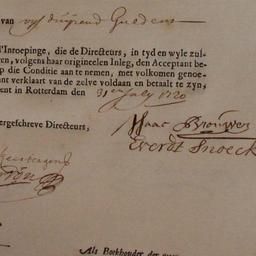 van vyf duijsend Guldens
d'Inroepinge, die de Directeurs, in tyd en wyle zul-
en, volgens haar origineelen Inleg, den Acceptant be-
p die Conditie aan te nemen, met volkomen genoe-
ant verklaart van de zelve voldaan en betaalt te zyn,
ent in Rotterdam den 31en July 1720
ergeschreve Directeurs,
Isaac Brouwer
Everdt Snoeck
Als Boekhouder der